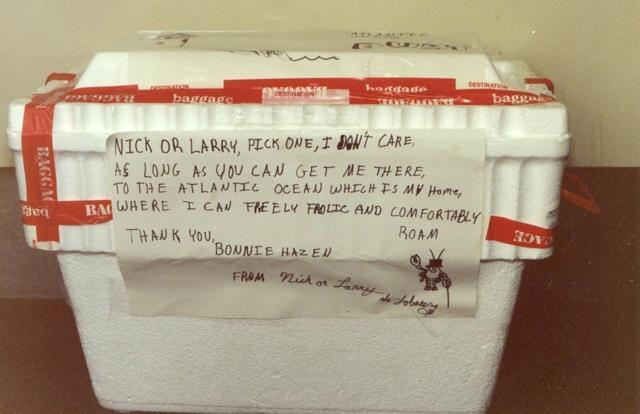 ATLANTIC
DESTINATION
DESTINATION
baggage
BAGGAGE
baggage
DESTINATION
BAGGAGE
baggage
BAGGAGE
NICK OR LARRY, PICK ONE, I DON'T CARE,
AS LONG AS YOU CAN GET ME THERE,
TO THE ATLANTIC OCEAN WHICH IS MY HOME,
WHERE I CAN FREELY FROLIC AND COMFORTABLY
ROAM
THANK YOU,
BONNIE HAZEN
FROM Nick or Larry
BAGGAGE
bagg
BAG
GAGE